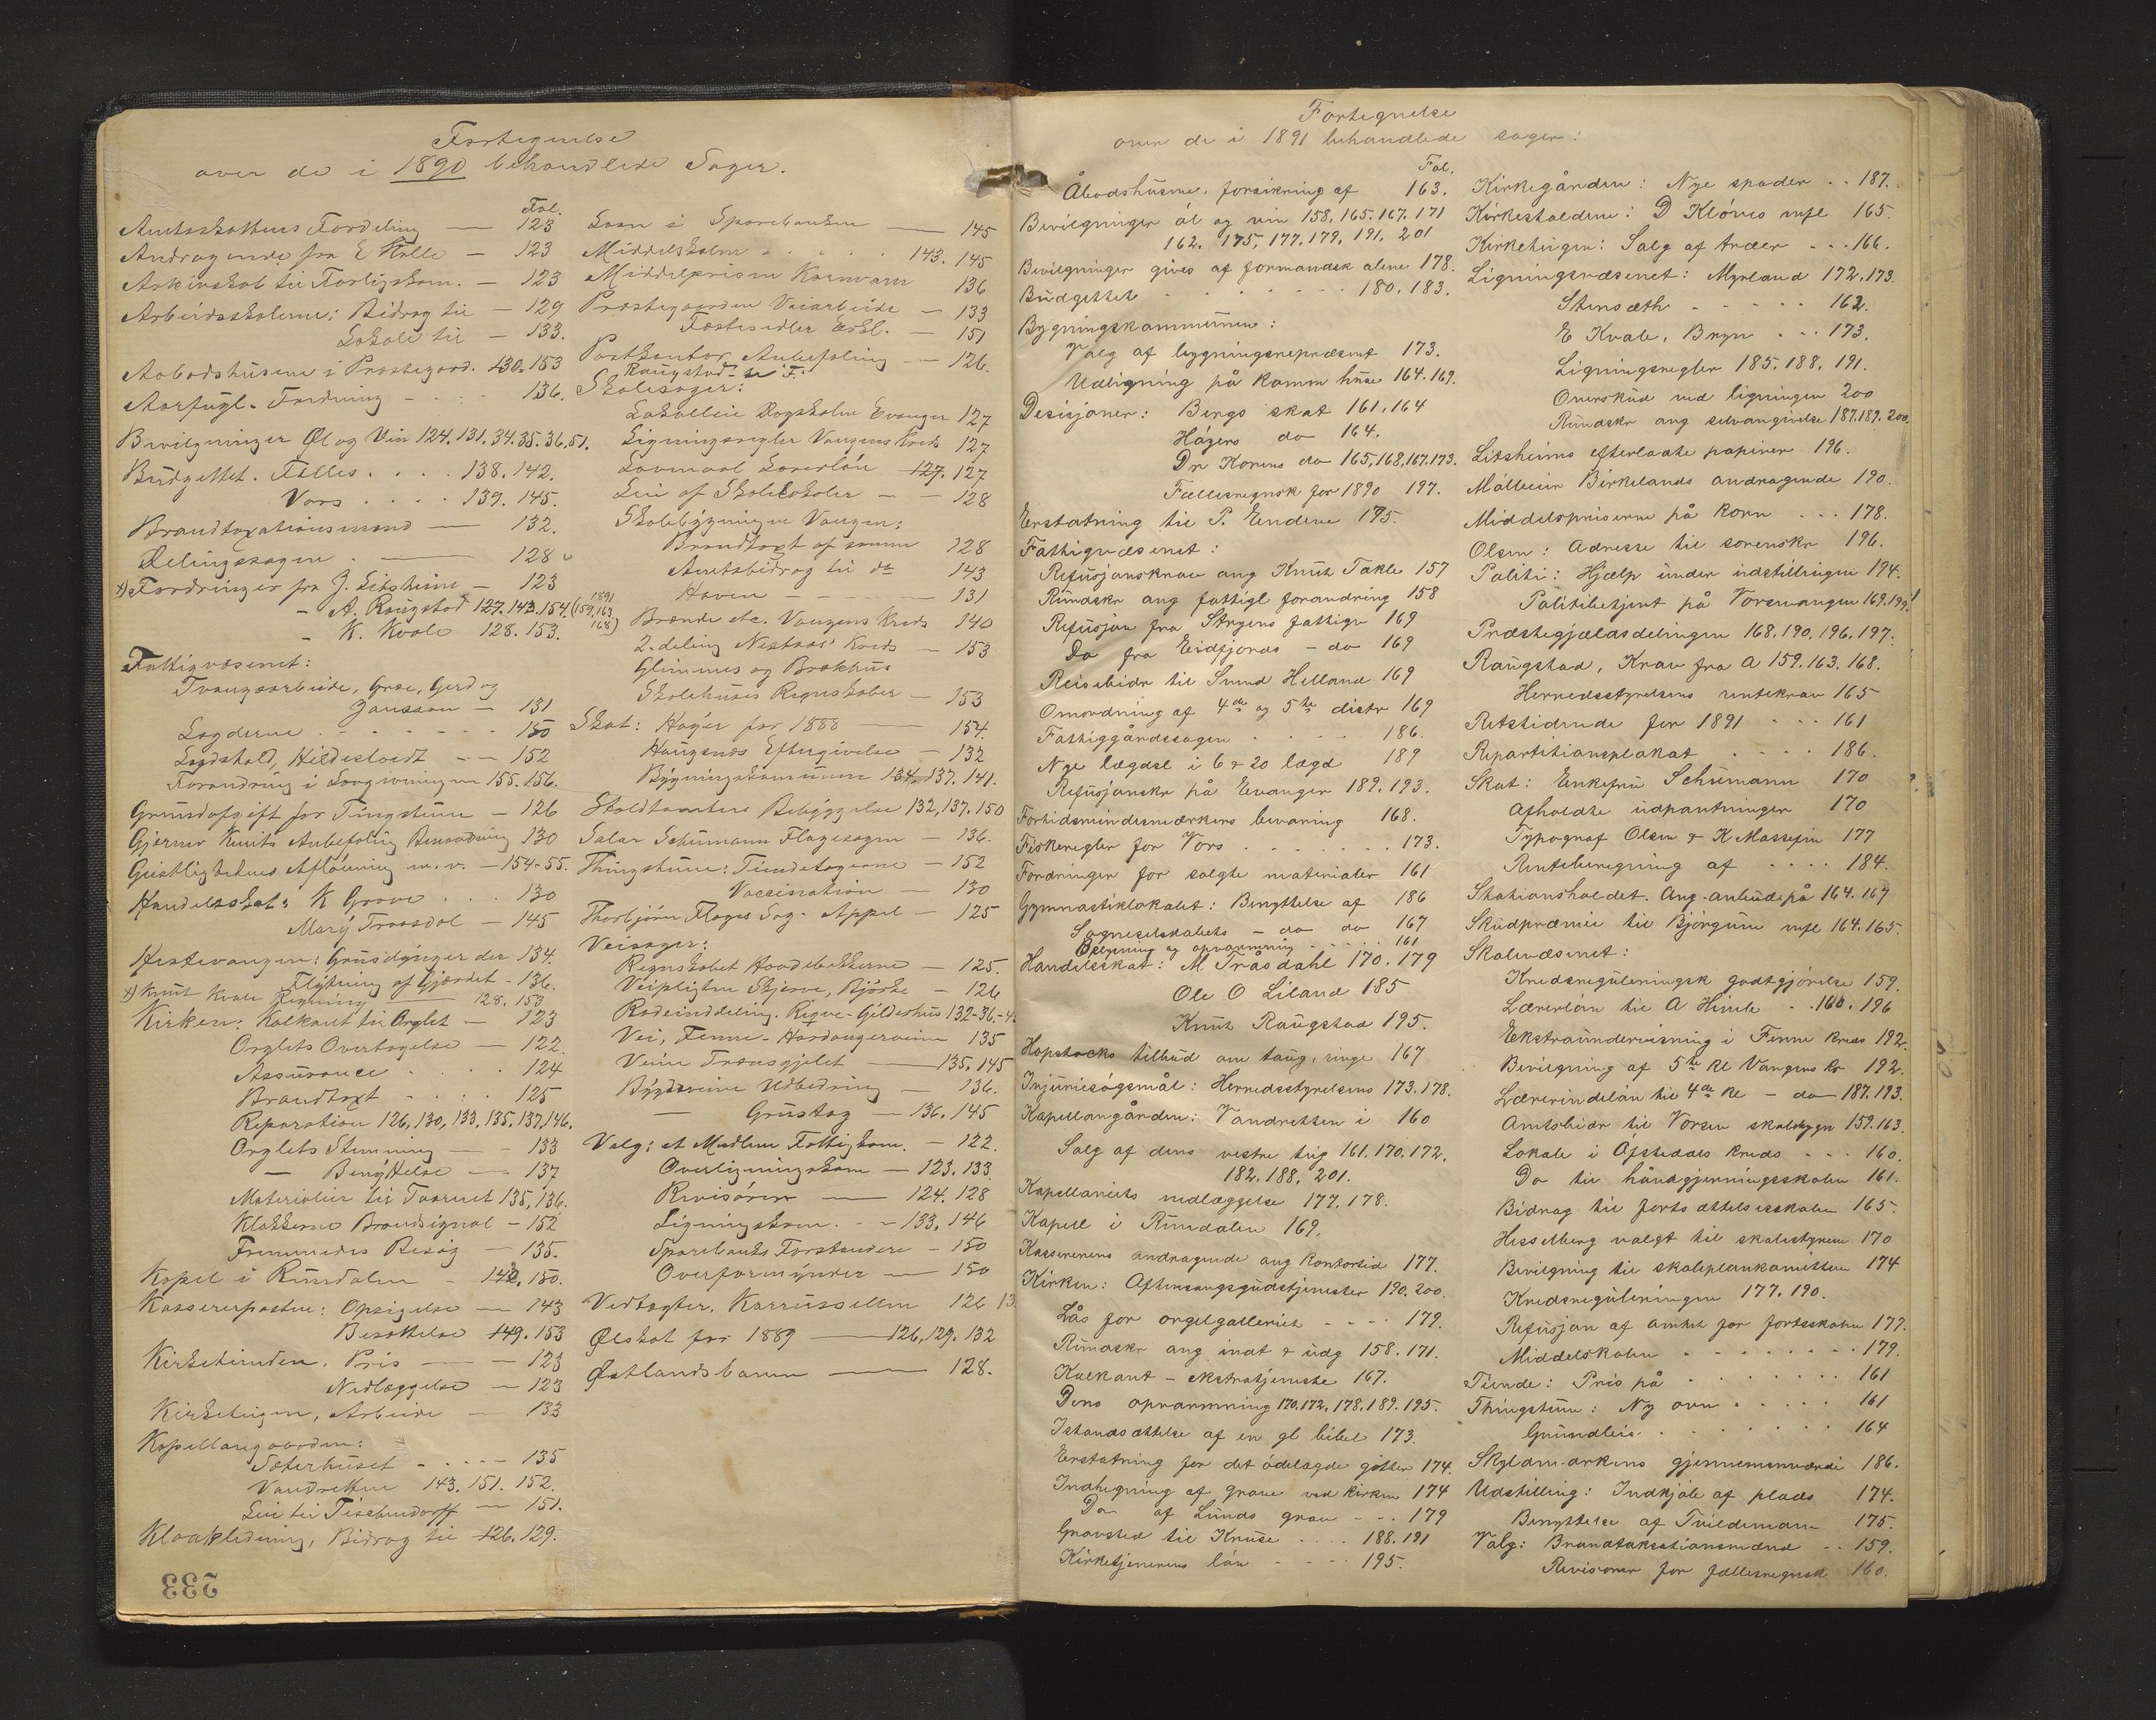 Fortegnelse
over de i 1890 behandlede Sager.
Fol.
Amtsskattens Fordeling — 123
Andragende fra E Holle — 123
Arkivskab til Forligskom. — 123
Arbeidsskolerne: Bidrag til — 129
Lokale til — 133.
Aabodshusene i Prestegaard. 130. 153
Aarfugl. Fredning - - - 136.
Bevilgninger Øl og Vin 124. 131. 34. 35. 36. 51.
Budgettet. Fælles . . . . 138. 142.
Vors . . . . 139. 145.
Brandtaxationsmænd — 132.
Delingssagen . — 128
x) Fordringer fra J. Litsheim — 123
- A. Raugstad 127. 143. 154. (1891 159, 163 168)
- K. Kvale 128. 153.
Fattigvæsenet:
Tvangsarbeide, Groe, Gerd og
Jansson — 131
Lægderne . - - - - - 150
Lægdshold, Hildeslovdt — 152
Forandring i Lovgivningen 155. 156.
Grundafgift for Tingstuen — 126
Gjerner Knuts Anbefaling Bensadning 130
Geistlighedens Aflønning m. v. — 154-55.
Handelsskat: K Grove . . . 130
Mary Traasdal — 145
Hestevangen: Grusdynger der 134.
Flytning af Gjærdet - 136.
x) Knut Kvale Regning — 128. 153
Kirken: Kalkant til Orglet — 123
Orglets Overtagelse — 122.
Assurance . . . . 124
Brandtaxt . - - : 125
Reparation 126, 130, 133, 135. 137, 146.
Orglets Stemning — 133
— Benyttelse — 137
Materialier til Taarnet 135, 136.
Klokkerne Brandsignal — 152
Fremmedes Besøg — 135.
Kapel i Rundalen - 142, 150.
Kassererposten: Opsigelse — 143
Besættelse 149. 153
Kirketienden. Pris — — 123
Nedlæggelse — 123
Kirketeigen, Arbeide — 133
Kapellangaarden:
Sæterhuset - - - - 135
Vandretten 143. 151. 152.
Leie til Tischendorff — 151.
Kloakledning, Bidrag til 126. 129.
233
Laan i Sparebanken — 145
Middelskolen . . . . . 143. 145
Middelprisen Kornvarer 136
Præstegaarden Veiarbeide — 133
Fæstesedler Erkl. — 151
Postkontor Anbefaling — 126.
Raugstad
Skolesager:
Lokalleie Dagskolen Evanger 127
Ligningsregler Vangens Kreds 127
Søvmaal Lærerløn 127. 127
Leie af Skolelokaler — — 128
Skolebygningen Vangen:
Brandtaxt af samme 128
Amtsbidrag til do 143
Haven - - - — 131
Brønde etc. Vangens Kreds 140
2-deling Nestaas' Kreds — 153
Glimmes og Brækhus
Skolehuses Regnskaber — 153
Skat: Høyer for 1888 — 154.
Haugens Eftergivelse — 132
Bygningskommunen 134. 137. 141.
Skoldtomtens Bebyggelse 132, 137. 150
Salar Schumann Flagesagen — 136.
Thingstuen: Tiendetagerne — 152
Vaccination — 130
Thorbjørn Flages Sag. Appel — 125
Veisager:
Regnskabet Haadebakkerne — 125.
Veipligten Skjerve, Bjørke — 126
Rodeinddeling. Reque-Gildeshus 132-36.-4.
Vei, Fenne-Hardangerveien 135
Veien Trængjelet — 135, 145
Bygdeveiene Udbedring — 136.
— Grustag — 136. 145
Valg: et Medlem Fattigkom. — 122.
Overligningskom — 123. 133.
Revisorer — 124. 128
Ligningskom. - - 133. 146
Sparebanks Forstandere — 150
Overformynder — 150
Vedtægter, Karrussellen 126 13
Ølskat for 1889 — 126, 129. 132
Østlandsbanen — 128.
Fortegnelse
over de i 1891 behandlede sager:
Fol.
Åbodshusene, forsikring af 163.
Bevilgninger øl og vin 158, 165. 167. 171
162. 175, 177. 179, 191. 201
Bevilgninger gives af formandsk alene 178.
Budgettet - - - - - 180. 183.
Bygningskommunen:
Valg af bygningsrepræsent 173.
Udligning på Komm huse 164. 169.
Desisjoner: Bergs skat 161. 164
Høyers do 164.
Dr Korens do 165, 168, 167. 173.
Fællesregnsk for 1890 197.
Erstatning til P. Endeve 175.
Fattigvæsenet:
Refusjonskrav ang Knut Takle 157
Rundskr ang fattigl forandring 158
Refusjon fra Stryens fattigv 169
Do fra Eidfjords — do 169
Reisebidr til Svend Helland 169
Omordning af 4de og 5te distr 169
Fattiggårdssagen . . . . 186.
Nye lægdsl i 6 & 20 lægd 189
Refusjonskr på Evanger 189. 193.
Fortidsmindesmærkers bevaring 168.
Fiskeregler for Vors . . . . . . 173.
Fordringer for solgte materialer 161
Gymnastiklokalet: Benyttelse af 186
Sogneselskabets — do do 167
Belysning og opvarmning - - - - 161
Handelsskat: M Tråsdahl 170. 179
Ole O Liland 185
Knut Raugstad 195.
Hopstocks tilbud om taug, ringe 167
Injuriesøgsmål: Herredsstyrelsens 173. 178.
Kapellangården: Vandretten i 160
Salg af dens vestre teig 161. 170. 172.
182, 188, 201.
Kapellaniets nedlæggelse 177. 178.
Kapell i Rundalen 169.
Kassererens andragende ang kontortid 177.
Kirken: Aftensangsgudstjenester 190. 200.
Lås for orgelgalleriet - - - - 179.
Rundskr ang indt & udg 158. 171.
Kalkant — ekstratjeneste 167.
Dens opvarmning 170. 172. 178. 189. 195.
Istandsættelse af en gl bibel 173.
Erstatning for det ødelagde gitter 174.
Indhegning af grave ved kirken 174
Do af Lunds grav - - - 179
Gravsted til Kruse . . . . 188. 191
Kirketjenerens løn - - - - 195.
Kirkegården: Nye spader . . 187.
Kirkestoldene: D Kløves mfl 165.
Kirketeigen: Salg af træer - - - 166.
Ligningsvæsenet: Myrland 172. 173.
Stensæth - - - - - 162.
E Kvale, Bryn - - - 173.
Ligningsregler 185. 188. 191.
Overskud ved ligningen 200
Rundskr ang selvangivelse 187. 189. 200.
Litsheims efterladte papirer 196.
Målleier Birkelands andragende 190.
Middelspriserne på korn . . . 178.
Olsen: adresse til sorenskr 196.
Politi: Hjælp under udstillingen 194.
Politibetjent på Vorsevangen 169. 199.
Præstegjældsdelingen 168. 190. 196. 197.
Raugstad, Krav fra A 159. 163. 168.
Herredsstyrelsens rentekrav 165
Retstidende for 1891 - - - 161
Repartitionsplakat . . . . 186.
Skat: Enkefru Schumann 170
Afholdte udpantninger 170
Typograf Olsen & K Massefin 177
Renteberegning af . . . . 184.
Stationsholdet. Ang. anbud på 164. 167
Skudpræmie til Bjørgum mfl 164. 165.
Skolevæsenet:
Kredsreguleringsk godtgjørelse 159.
Lærerløn til A Himle - . 160. 196
Ekstraundervisning i Fenne kreds 192.
Bevilgning af 5te kl Vangens kr 192.
Lærerindeløn til 4de kl — do — 187. 193.
Amtsbidr til Vorsev skolebygn 159. 163.
Lokale i Afstedals kreds - - - 160.
Do til håndgjerningsskolen 161.
Bidrag til fortsættelsesskolen 165.
Hesselberg valgt til skolestyren 170
Bevilgning til skoleplankomiteen 174
Kredsreguleringen 177. 190.
Refusjon af amtet for fortsskolen 177.
Middelskolen - - - - - - - 179.
Tiende: Pris på . . . . . . . 161
Thingstuen: Ny ovn . . . . . 161
Grundleie . . . . . . . 164
Skyldm.arkens gjennemsnværdi 186.
Udstilling: Indkjøb af plads 174.
Benyttelse af Tvildemoen 175.
Valg: Brandtakstionsmænd . . 159.
Revisorer for fællesregnsk 160.